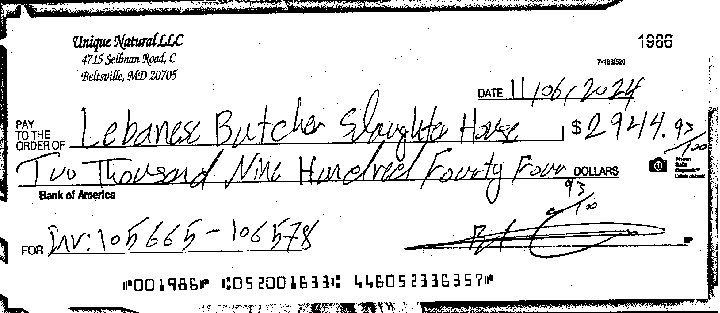 Unique Natural LLC 1986
4715 Sellman Road, C
Beltsville, MD 20705
DATE 11/06/2024
PAY TO THE ORDER OF Lebanese Butcher Slaughter House $2944.93/100
Two Thousand Nine Hundred Fourty Four 93/100 DOLLARS
Bank of America
FOR Inv: 105665-106578
⑈001986⑈ ⑆052001633⑆ 446052336357⑈